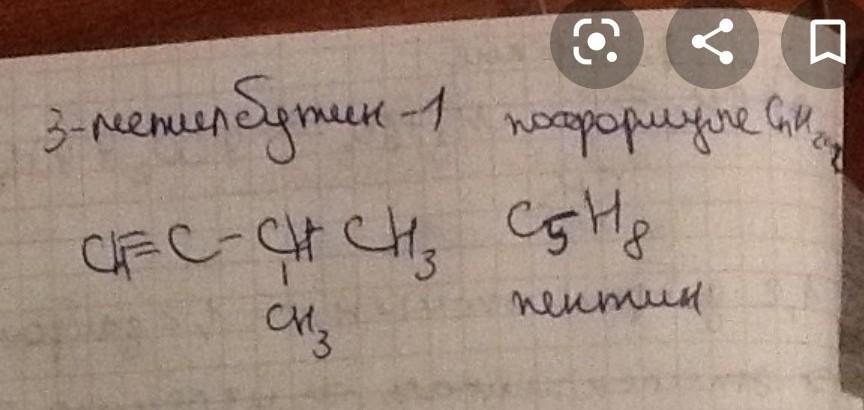 3-метилбутин-1 по формуле CnH2n-2
CH≡C-CH CH3 C5H8
CH3 пентин